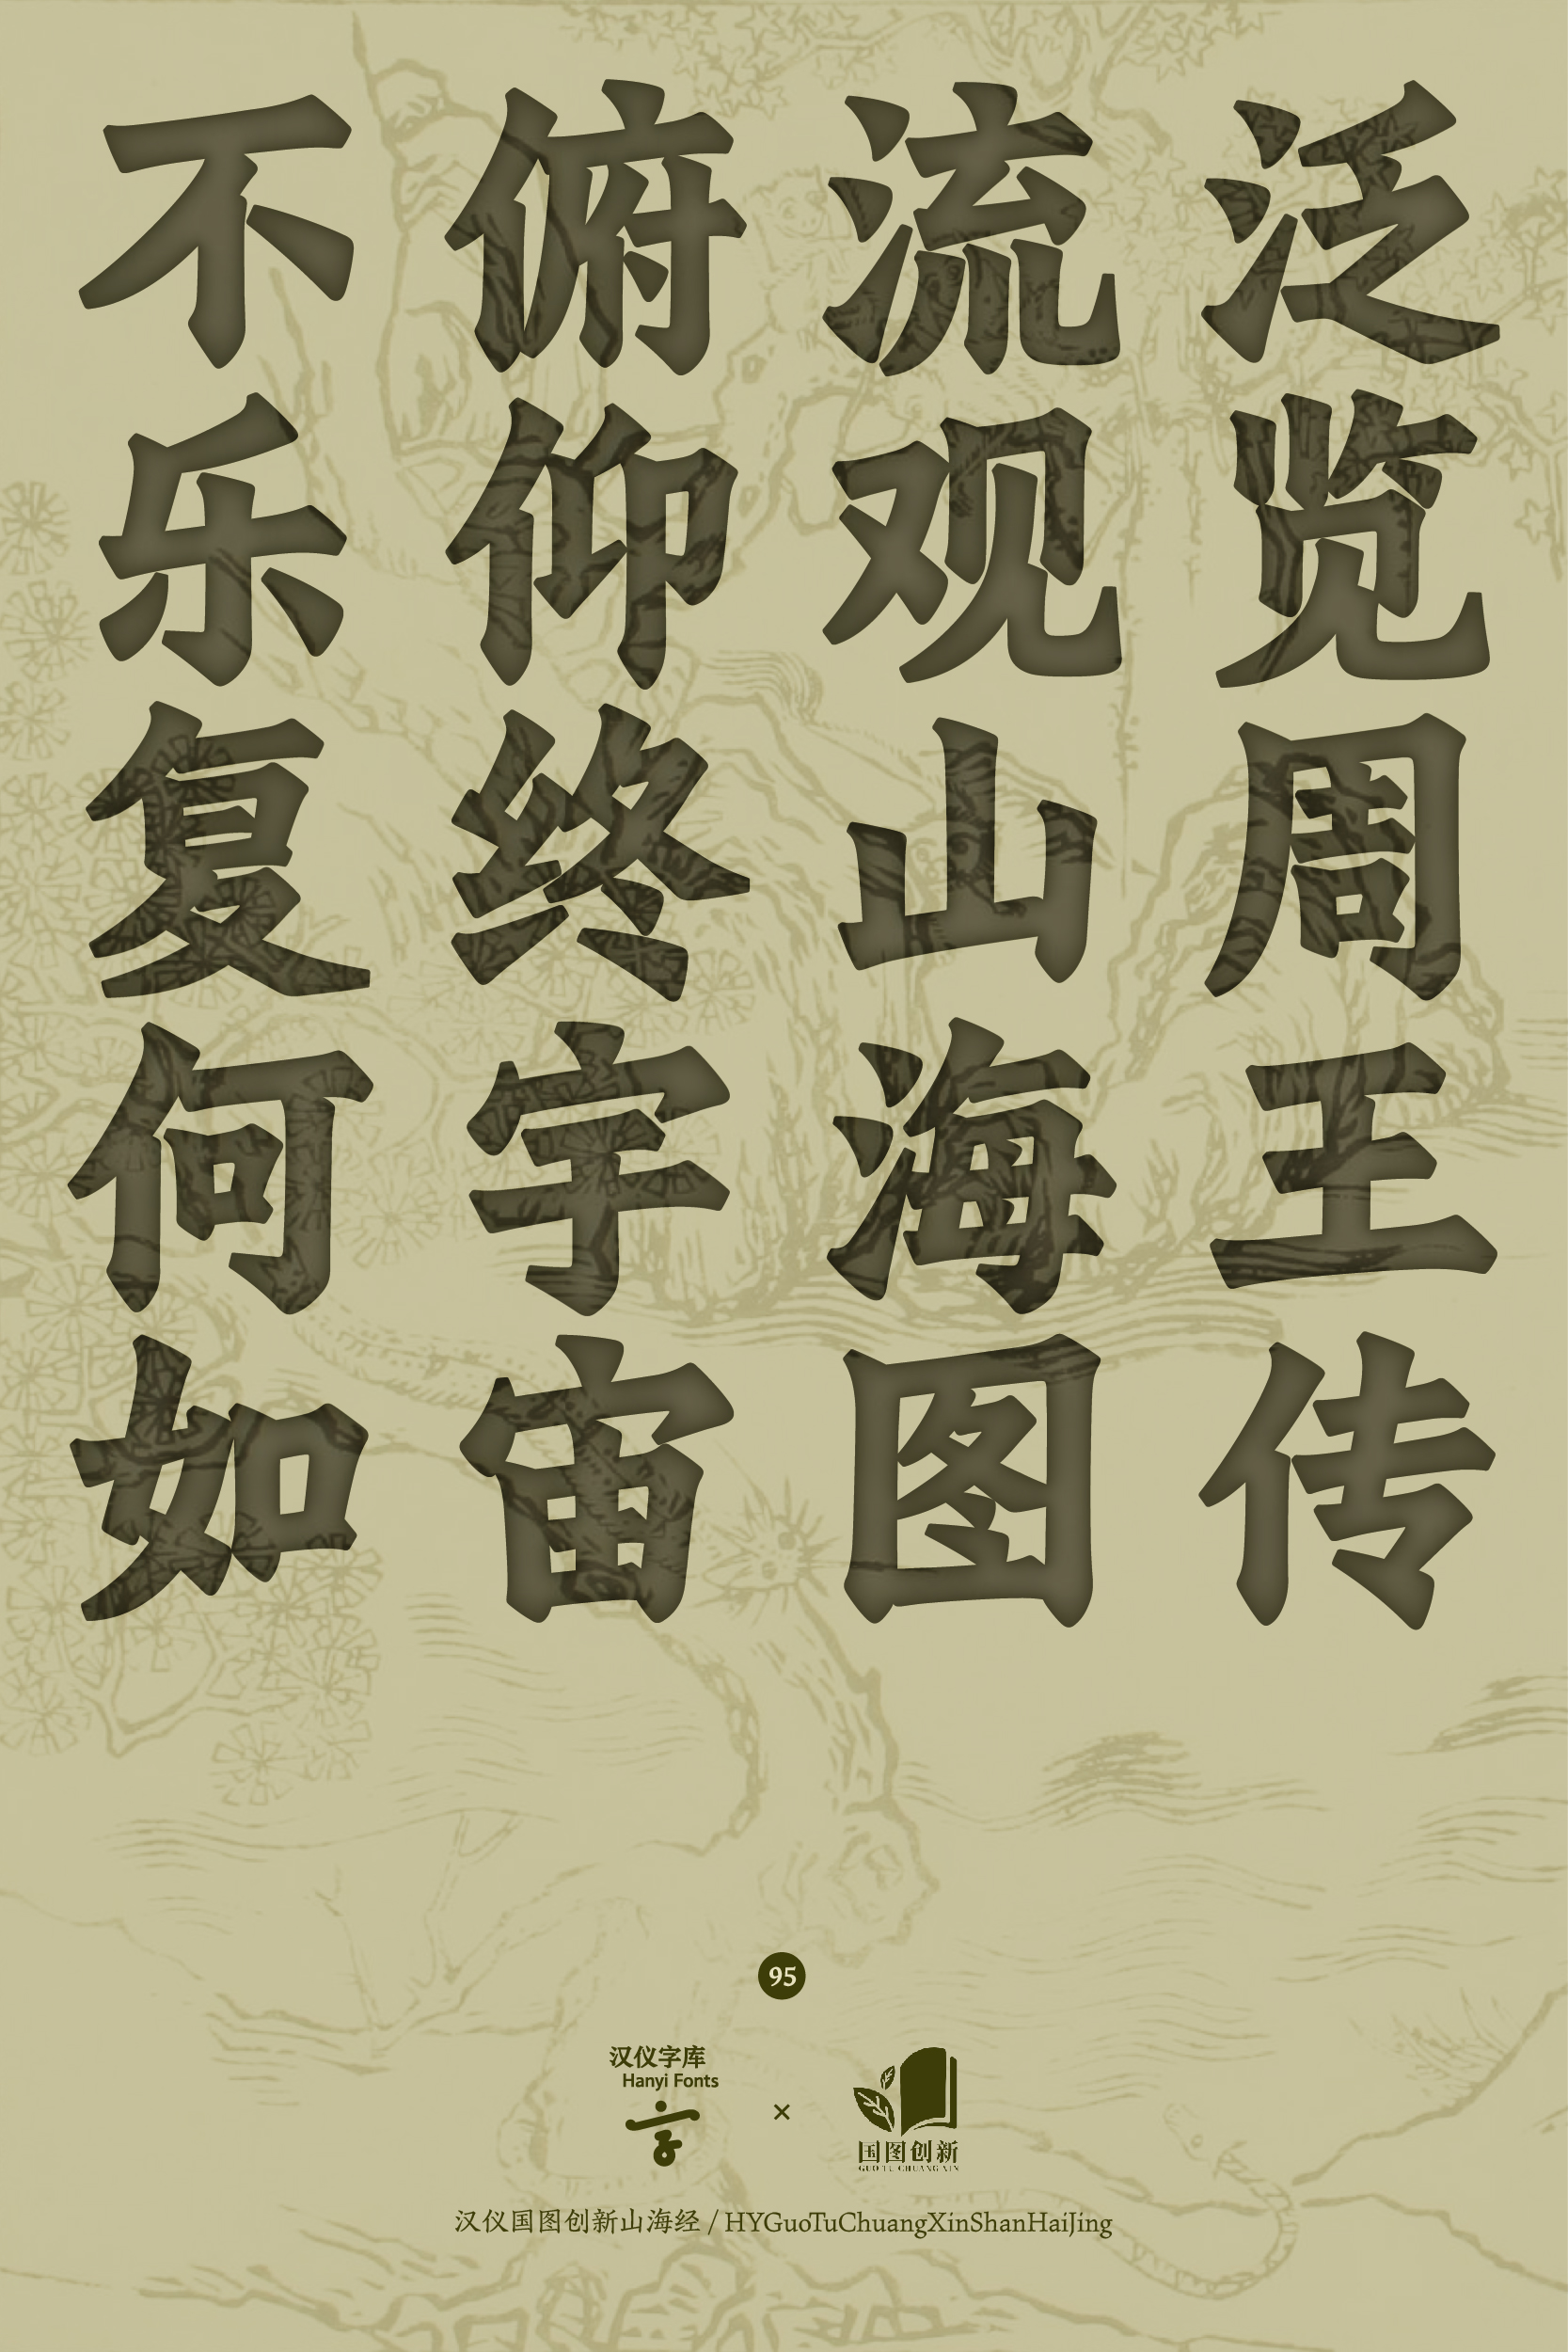 泛览周王传
流观山海图
俯仰终宇宙
不乐复何如
95
汉仪字库
Hanyi Fonts
×
国图创新
GUO TU CHUANG XIN
汉仪国图创新山海经 / HYGuoTuChuangXinShanHaiJing